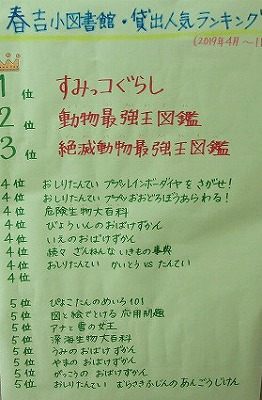 春吉小図書館・貸出人気ランキング
(2019年4月～1
1位 すみっコぐらし
2位 動物最強王図鑑
3位 絶滅動物最強王図鑑
4位 おしりたんてい ププッレインボーダイヤをさがせ!
4位 おしりたんてい ププッおおどろぼうあらわる!
4位 危険生物大百科
4位 びょういんのおばけずかん
4位 いえのおばけずかん
4位 続々 ざんねんないきもの事典
4位 おしりたんてい かいとう vs たんてい
5位 ぴよこたんのめいろ101
5位 図と絵でとける 応用問題
5位 アナと雪の女王
5位 深海生物大百科
5位 うみのおばけずかん
5位 やまのおばけずかん
5位 がっこうの おばけずかん
5位 おしりたんてい むらさきふじんのあんごうじけん